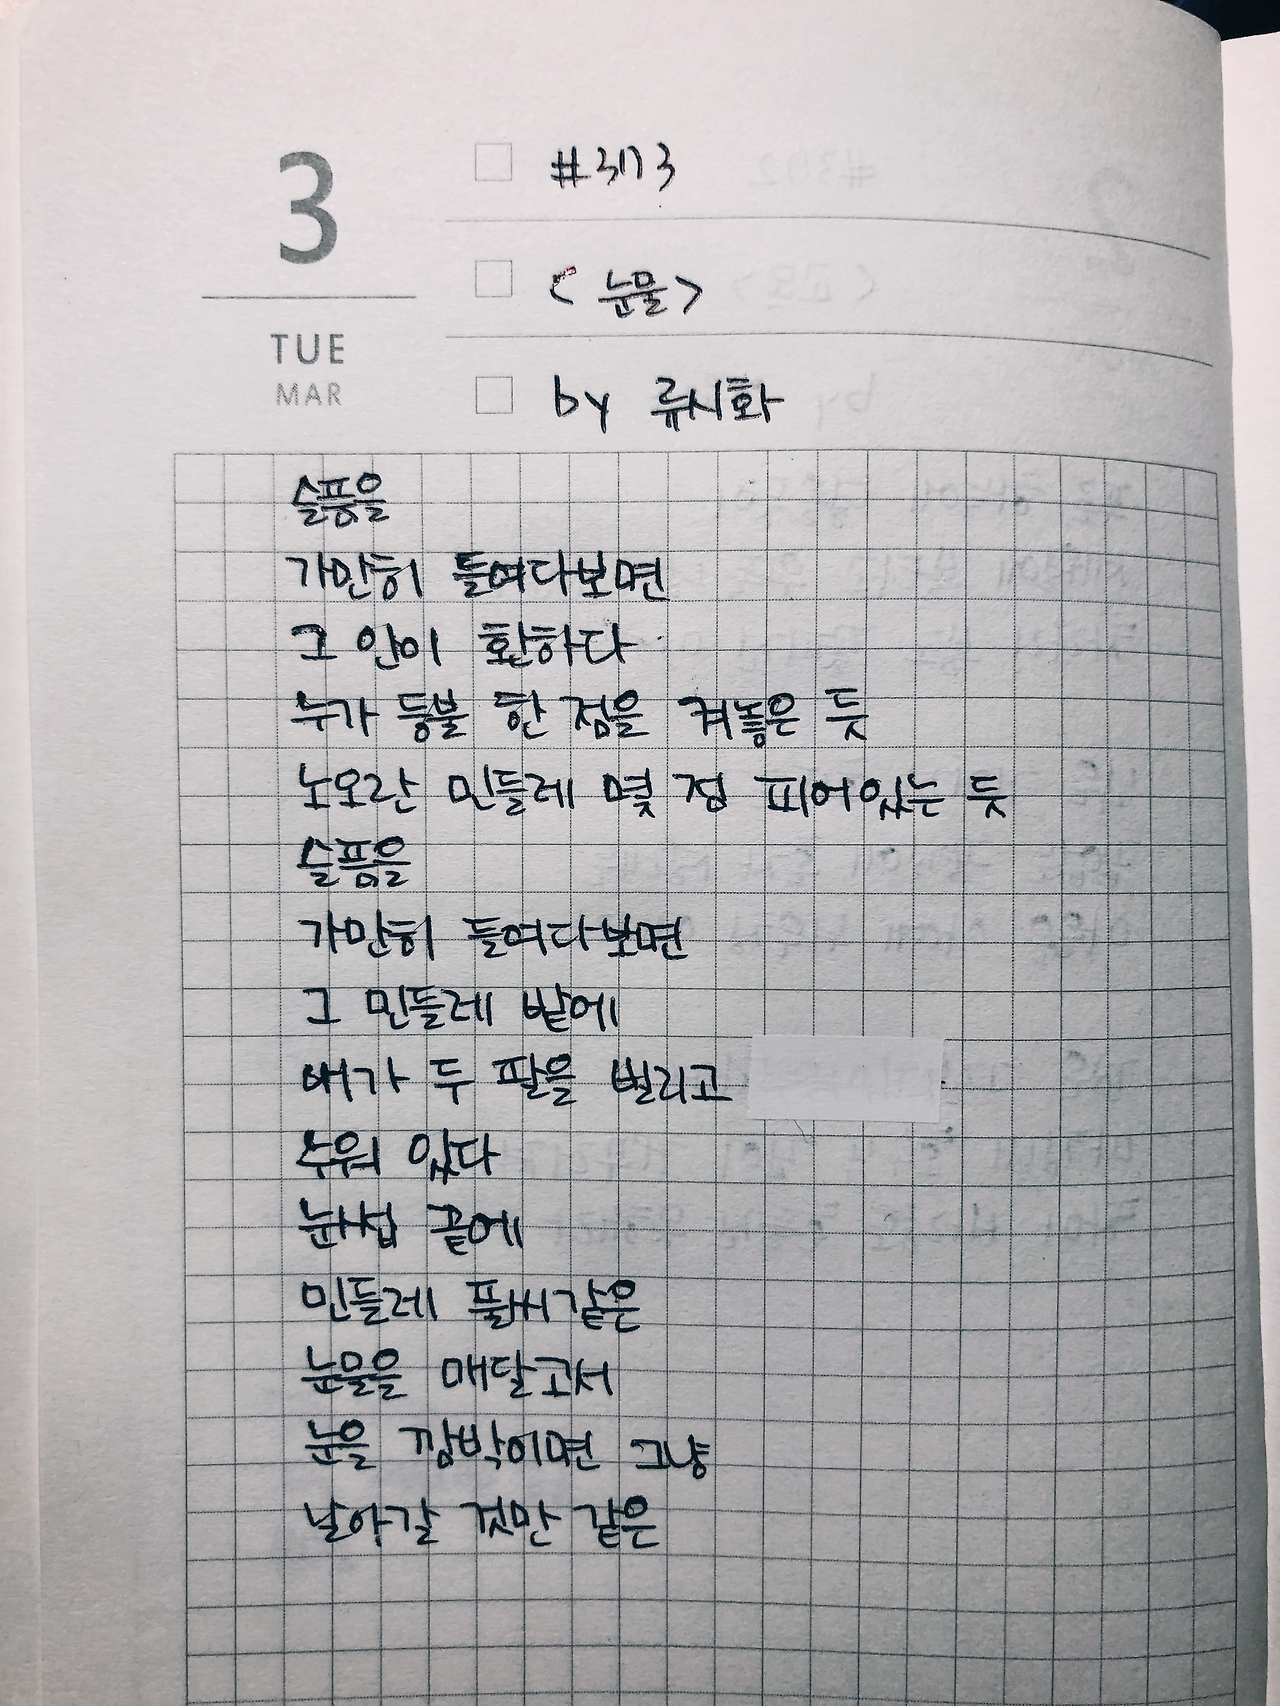 3
TUE
MAR
#3173
<눈물>
by 류시화
슬픔을
가만히 들여다보면
그 안이 환하다
누가 등불 한 점을 켜놓은 듯
노오란 민들레 몇 점 피어있는 듯
슬픔을
가만히 들여다보면
그 민들레 밭에
내가 두 팔을 벌리고
누워 있다
눈썹 끝에
민들레 풀씨같은
눈물을 매달고서
눈을 깜박이면 그냥
날아갈 것만 같은